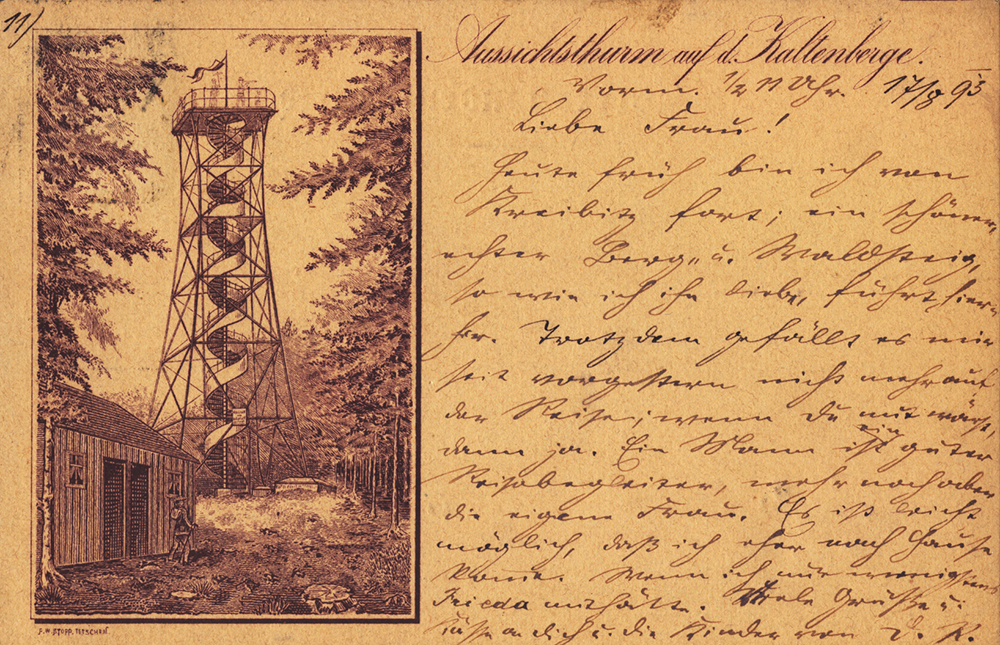 11)
Aussichtsthurm auf d. Kaltenberge.
Vorm. 1/2 11 Uhr. 17/8 93
Liebe Frau!
Heute früh bin ich von
Kreibitz fort; ein schöner,
echter Berg- u. Waldsteig,
so wie ich ihn liebe, führt hier-
her. Trotzdem gefällt es mir
seit vorgestern nicht mehr auf
der Reise; wenn Du mit wärst,
dann ja. Ein Mann ist ein guter
Reisebegleiter, mehr noch aber
die eigene Frau. Es ist leicht
möglich, daß ich eher nach Hause
komme. Wenn ich nur wenigstens
Frieda mithätte. Viele Grüße u.
Küsse an dich u. die Kinder von D. R.
F. W. STOPP, TETSCHEN.